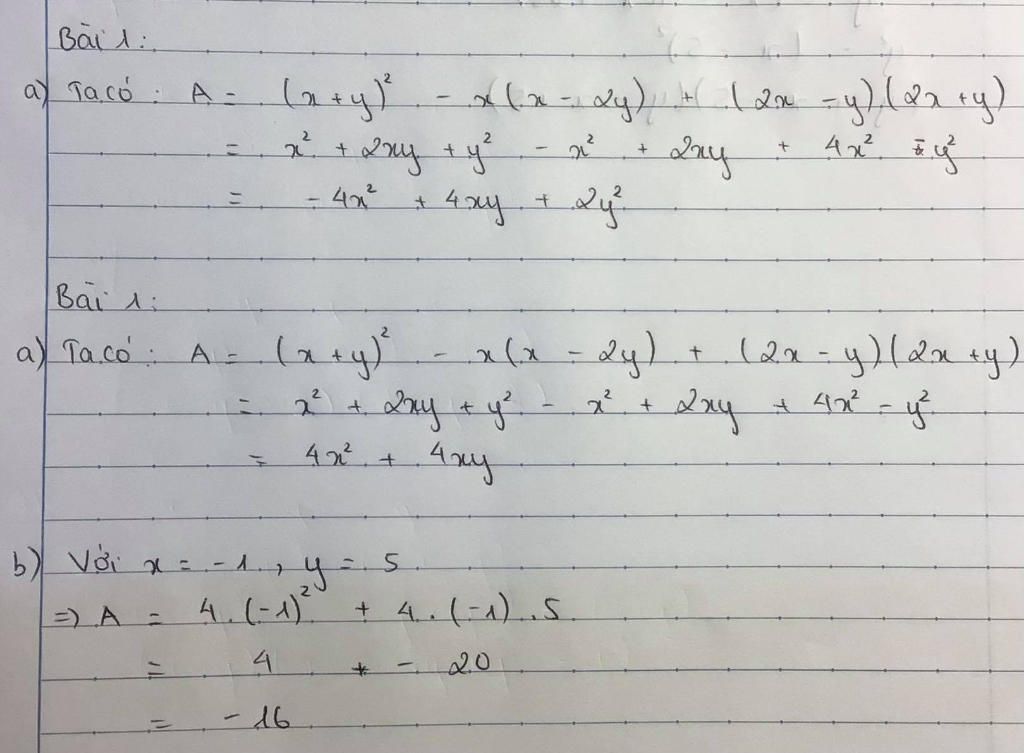 Bài 1:
a) Ta có: A = (x + y)² - x(x - 2y) + (2x - y)(2x + y)
= x² + 2xy + y² - x² + 2xy + 4x² - y²
= - 4x² + 4xy + 2y²
Bài 1:
a) Ta có: A = (x + y)² - x(x - 2y) + (2x - y)(2x + y)
= x² + 2xy + y² - x² + 2xy + 4x² - y²
= 4x² + 4xy
b) Với x = -1, y = 5
=> A = 4.(-1)² + 4.(-1).5
= 4 + - 20
= -16